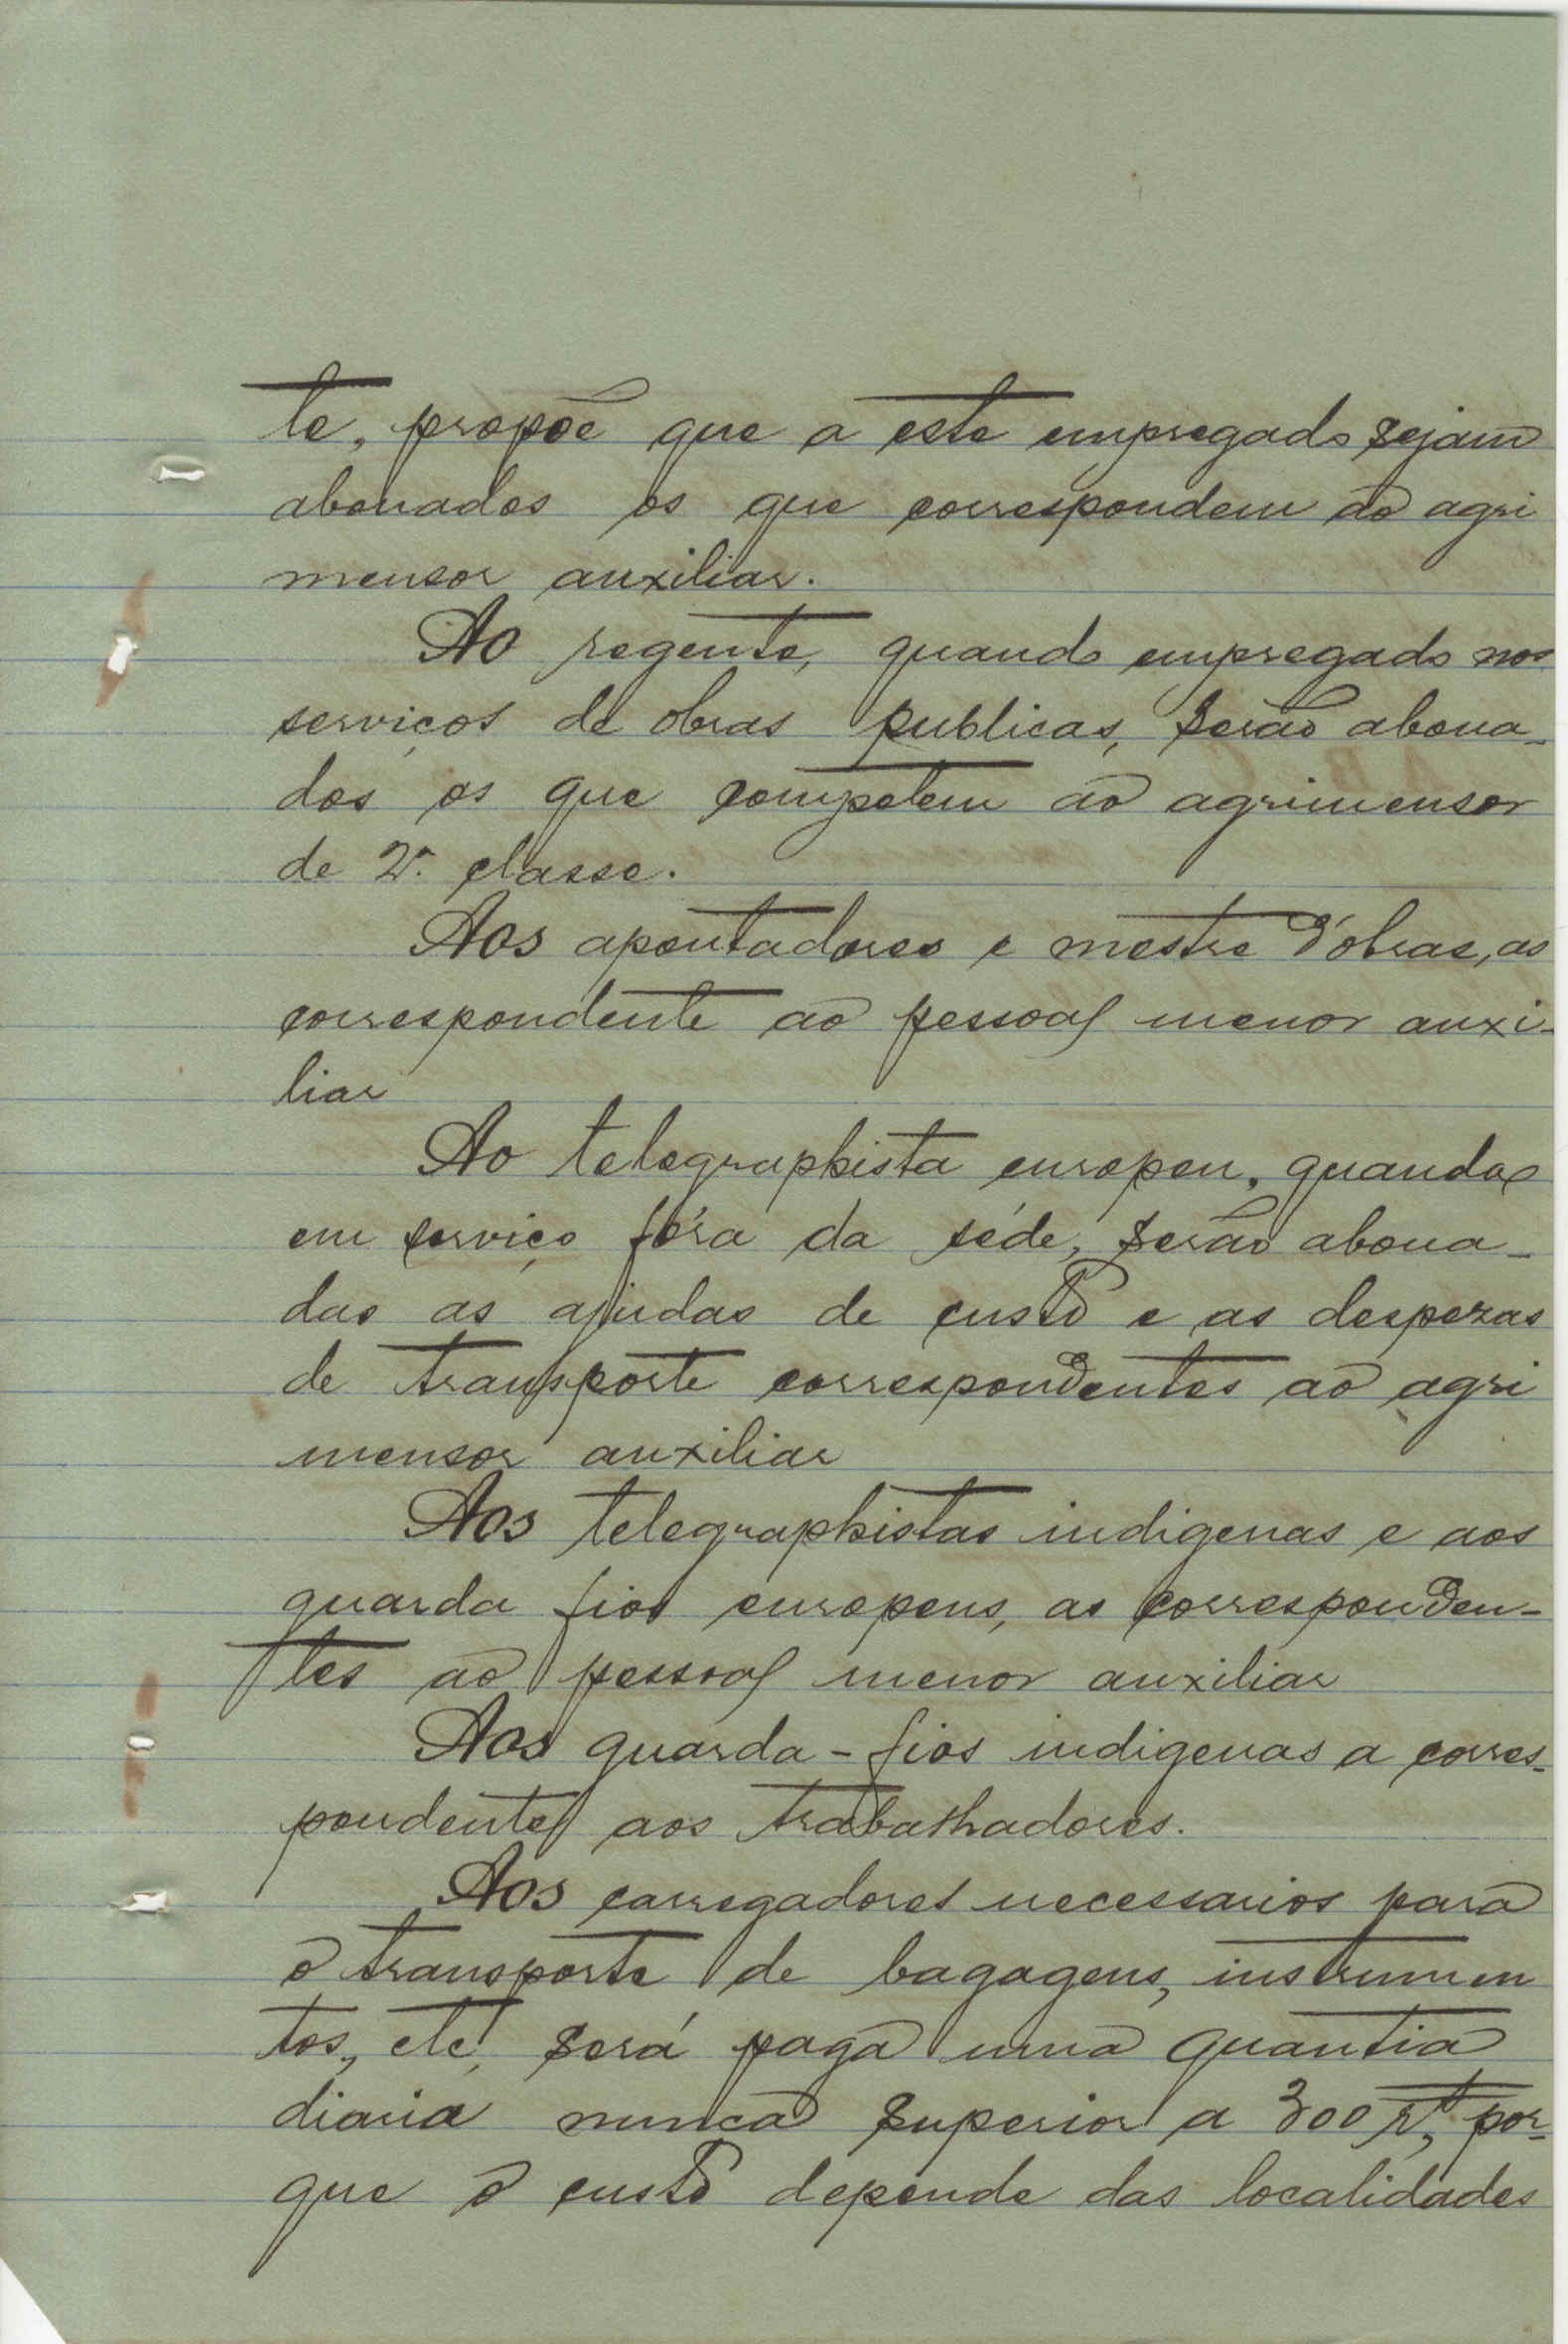 te, propõe que a este empregado sejam
abonados os que correspondem ao agri
mensor auxiliar.
Ao regente, quando empregado nos
serviços de obras publicas, serão abona-
dos os que competem ao agrimensor
de 2ª classe.
Aos apontadores e mestre d'obras, as
correspondente ao pessoal menor auxi-
liar
Ao telegraphista europeu, quando
em serviço fóra da séde, serão abona-
das as ajudas de custo e as despezas
de transporte correspondentes ao agri
mensor auxiliar
Aos telegraphistas indigenas e aos
guarda fios europeus, as corresponden-
tes ao pessoal menor auxiliar
Aos guarda-fios indigenas a corres-
pondente aos trabalhadores.
Aos carregadores necessarios para
o transporte de bagagens, instrumen
tos, etc, será paga uma quantia
diaria nunca superior a 300 rs, por-
que o custo depende das localidades